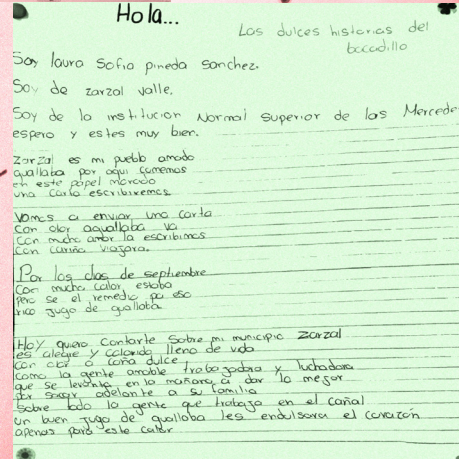 Hola...
Las dulces historias del
bocadillo
Soy laura Sofia pineda Sanchez.
Soy de zarzal valle.
Soy de la institucion Normal Superior de las Mercede
espero y estes muy bien.
Zarzal es mi pueblo amado
guallaba por aqui comemos
en este papel morado
una carta escribiremos
Vamos a enviar una carta
Con olor aguallaba va
Con mucho amor la escribimos
Con cariño viajara.
Por los dias de septiembre
Con mucha calor estaba
Pero se el remedio pa eso
rico jugo de guallaba
Hoy quiero Contarte Sobre mi municipio Zarzal
es alegre y colorido lleno de vida
Con olor a caña dulce
Como la gente amable trabajadora y luchadora
que se levanta en la mañana a dar lo mejor
por sacar adelante a su familia
Sobre todo la gente que trabaja en el cañal
un buen jugo de guallaba les endulsara el corazón
apenas para este calor